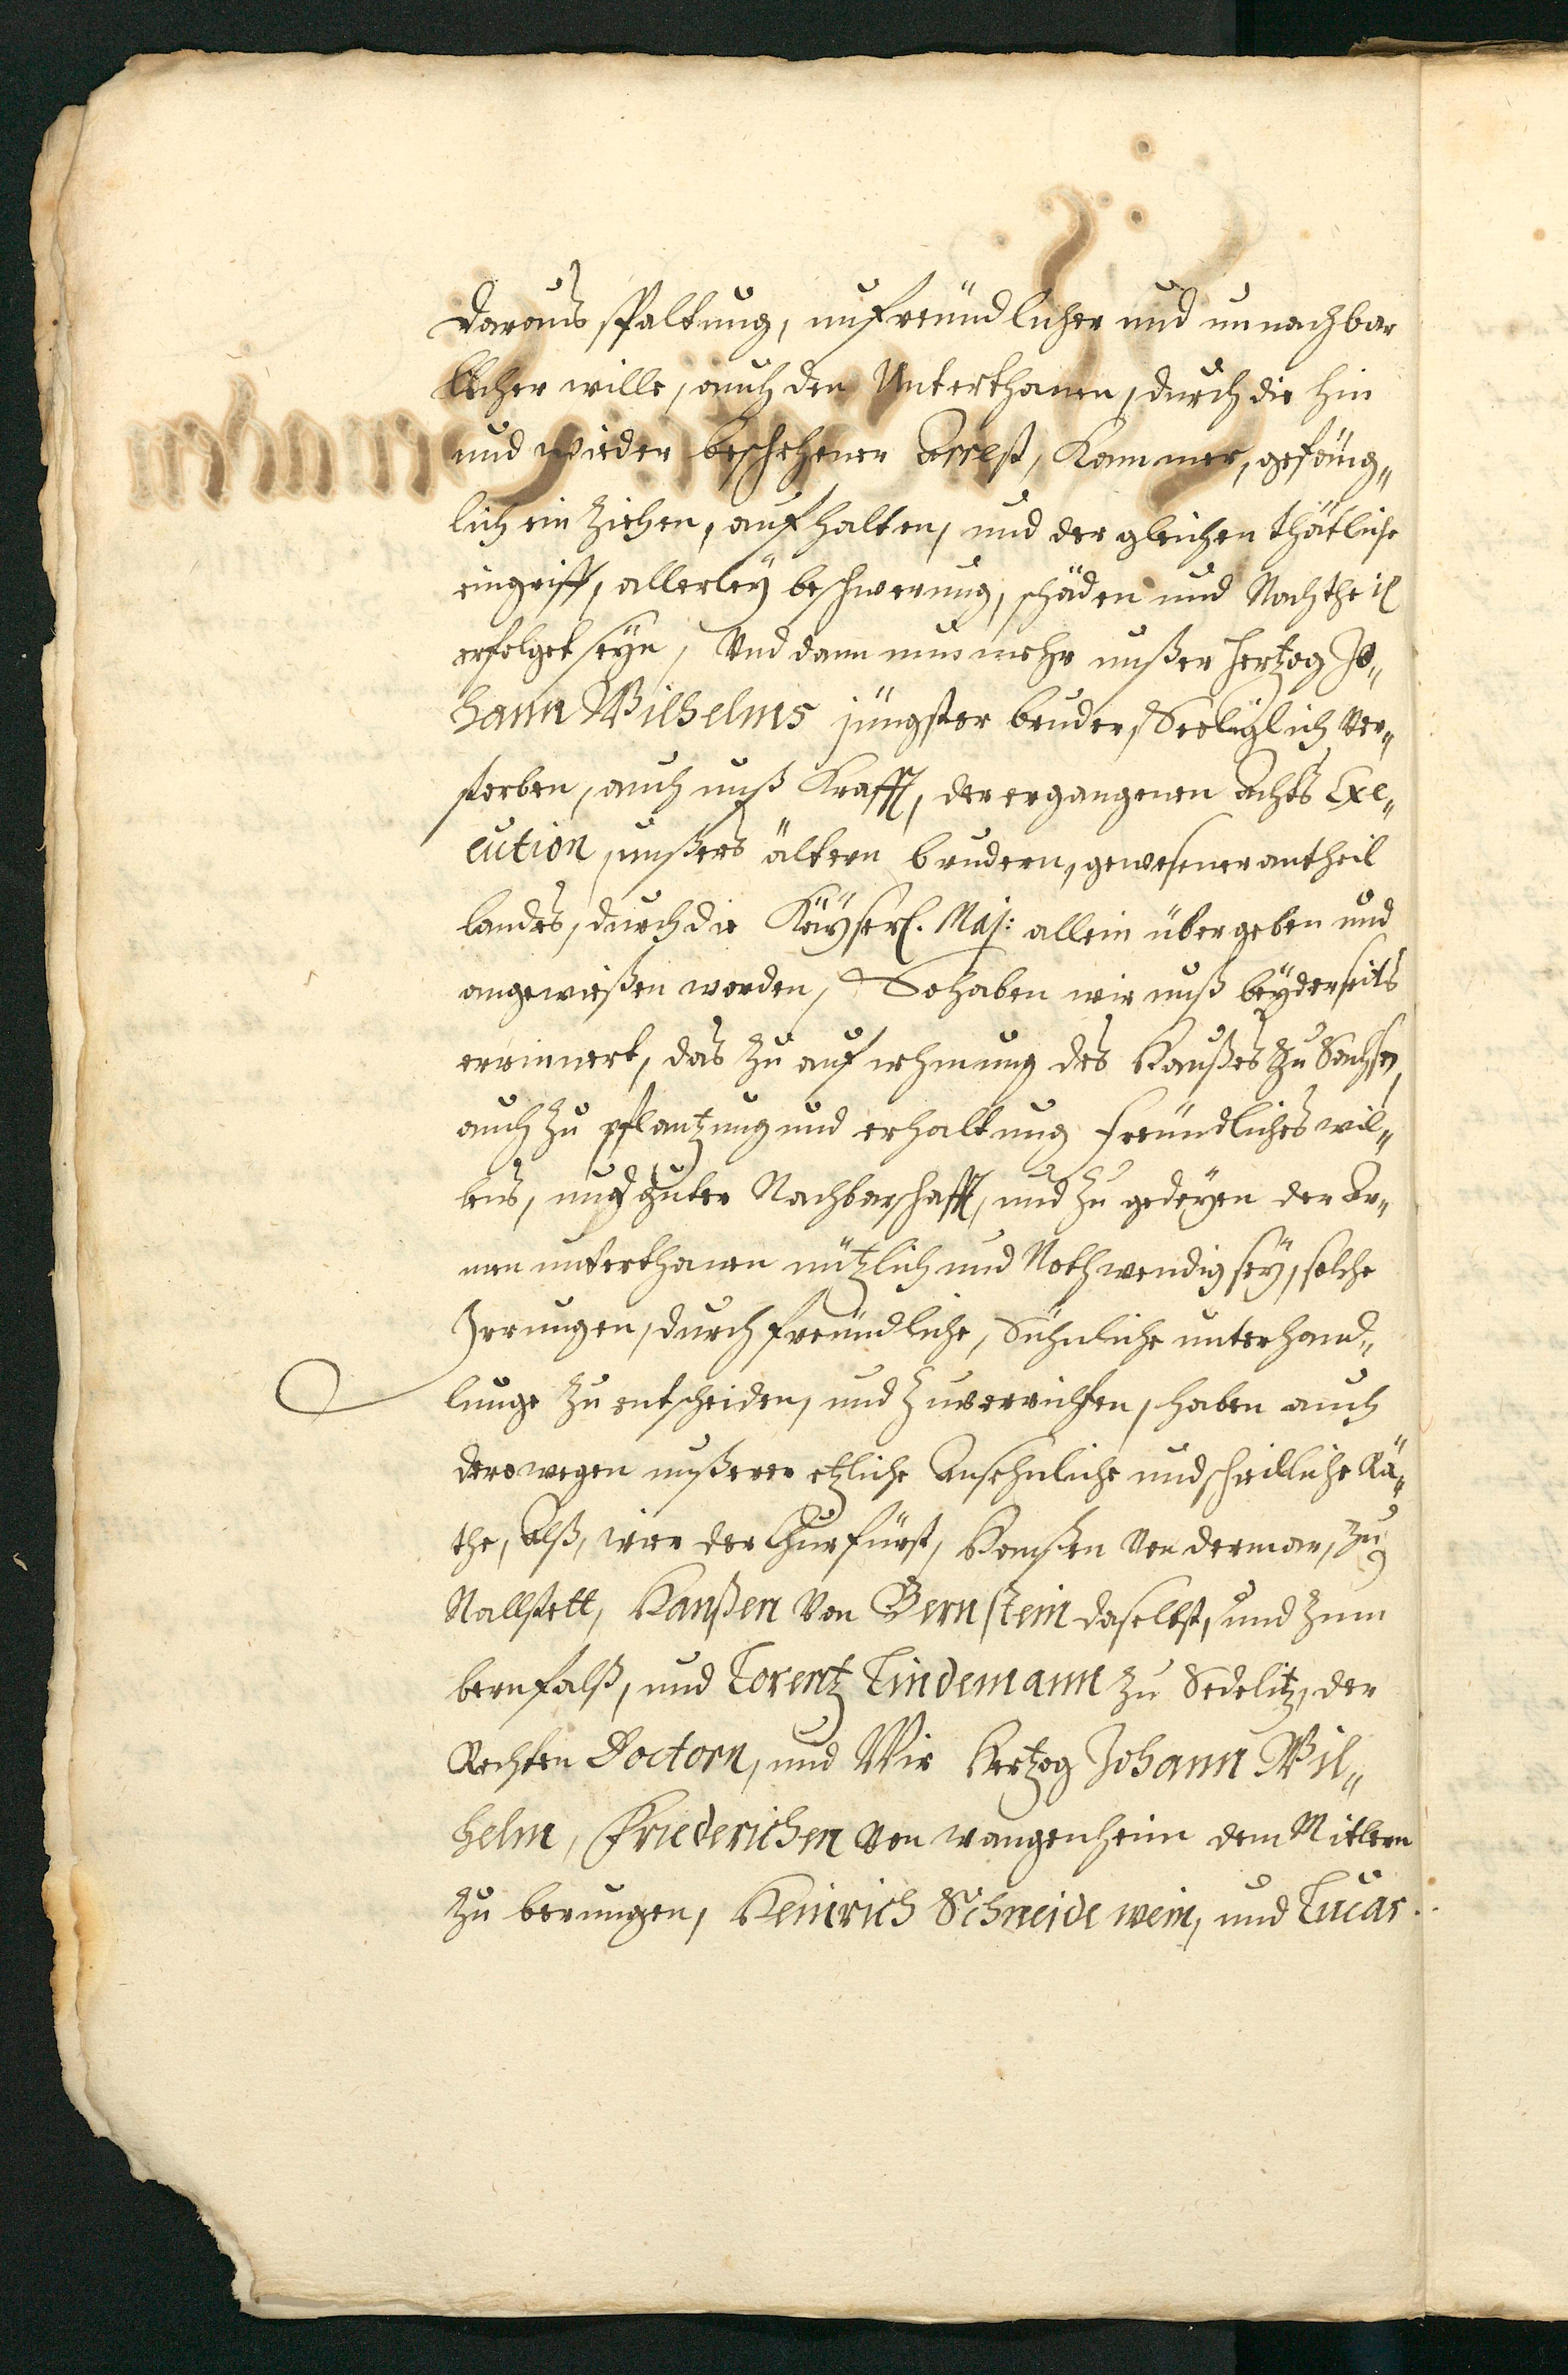 daraus spaltung, unfreundlicher und unnachbar
licher wille, auch den Unterthanen, durch die hin
und wieder beschehener Arrest, Kammer, gefäng„
lich ein ziehen, aufhalten, und der gleichen thätliche
eingriff, allerley beschwerung, schäden und Nachtheil
erfolget seyn, Und dann nun mehr unßer Hertzog Jo„
hann Wilhelms jüngster bruder, Seeliglich ver„
storben, auch unß Krafft, der ergangenen Achts Exe„
cution, unßers ältern brudern, gewesener antheil
landes, durch die Käyserl. Maj: allein übergeben und
angewießen worden, So haben wir unß beyderseits
errinnert, das zu auf nehmung des Haußes zu Sachsen,
auch zu pflantzung und erhaltung freundliches wil„
lens, und guter Nachbarschafft, und zu gedeyen der Ar„
men unterthanen nützlich und Nothwendig sey, solche
Irrungen, durch freundliche, Sühnliche unterhand„
lunge zu entscheiden, und zuverrichten, haben auch
derowegen unßerer etzliche Ansehnliche und schidliche Rä„
the, Alß, wir der Churfürst, Hanßen von dermar, zu
Nallstett, Hanßen von Bernstein daselbst, und zum
bernfalß, und Lorentz Lindemann zu Sedelitz, der
Rechten Doctorn, und Wir Hertzog Johann Wil„
helm, Friederichen von wangenheim dem Mitlern
zu berungen, Heinrich Schneide wein, und Lucas